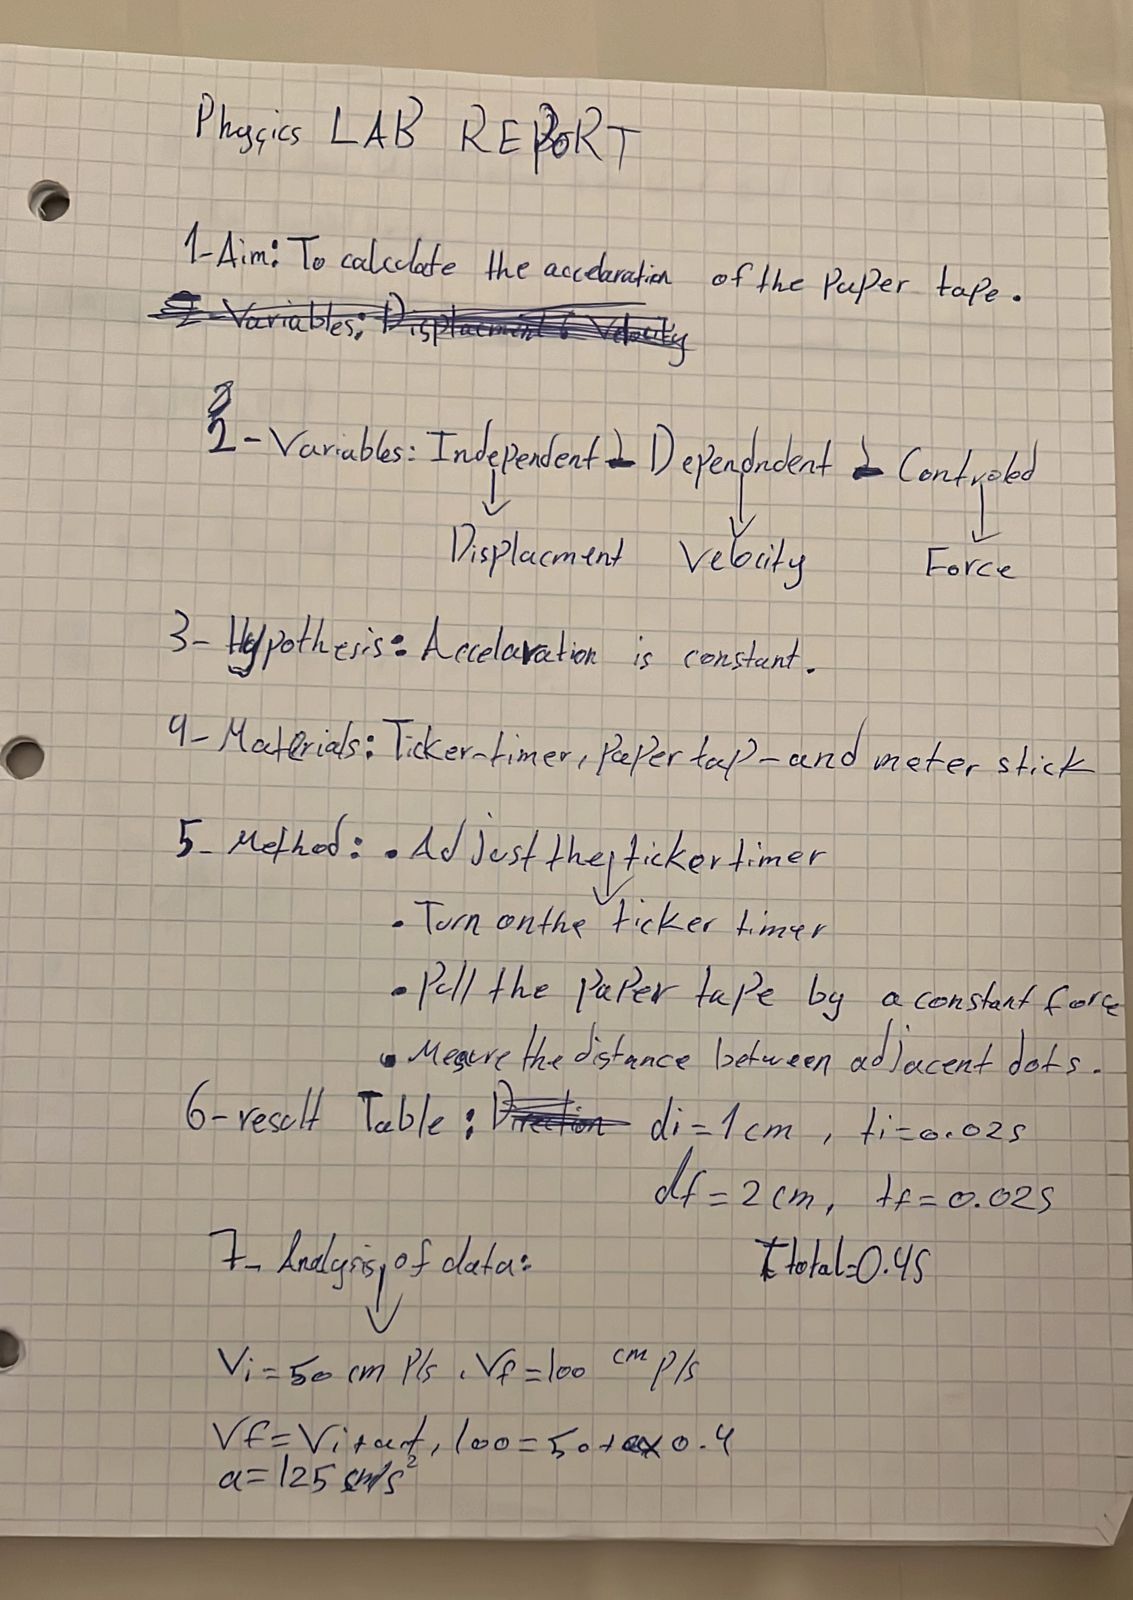 Physics LAB REPORT
1-Aim: To calculate the accelaration of the paper tape.
2- Variables: Displacment & Velocity
2- Variables: Independent - Dependndent - Controled
Displacment Velocity Force
3- Hypothesis: Accelaration is constant.
4- Materials: Ticker-timer, paper tap-and meter stick
5- Method: • Adjust the ticker timer
• Turn on the ticker timer
• Pull the paper tape by a constant force
• Mesure the distance between adjacent dots.
6-result Table: Direction di=1cm, ti=0.02s
df=2cm, tf=0.02s
7- Analysis of data: t total=0.4s
Vi=50 cm P/s, Vf=100 cm P/s
Vf=Vi+at, 100=50+ax0.4
a=125 cm/s²